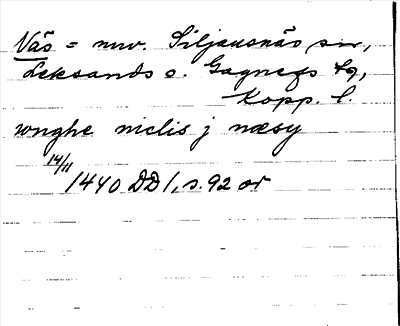 Näs = nuv. Siljansnäs sn,
Leksands o. Gagnefs tg,
Kopp. l.
wnghe niclis j næsy
14/11 1440 DD 1, s. 92 or